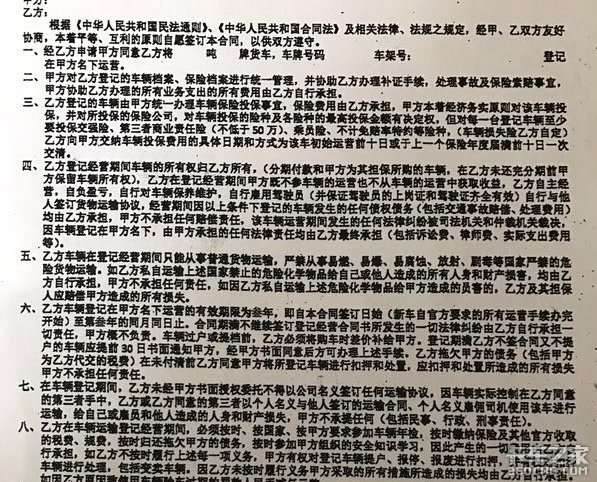 乙方:
根据《中华人民共和国民法通则》、《中华人民共和国合同法》及相关法律、法规之规定，经甲、乙双方友好
协商，本着平等、互利的原则自愿签订本合同，以供双方遵守。
一、经乙方申请甲方同意乙方将 吨 牌货车，车牌号码 车架号: 登记
在甲方名下运营。
二、甲方对乙方登记的车辆档案、保险档案进行统一管理，并协助乙方办理补证手续，处理事故及保险索赔事宜，
甲方协助乙方办理的所有业务支出的所有费用由乙方自行承担。
三、乙方登记的车辆由甲方统一办理车辆保险投保事宜，保险费用由乙方承担，甲方本着经济务实原则对该车辆投
保，并对所投保的保险公司，对车辆投保的险种及各险种的最高投保金额有决定权，但对每一台登记车辆至少
要投保交强险、第三者商业责任险（不低于50万）、乘员险、不计免赔率特约等险种，（车辆损失险乙方自定）
乙方向甲方交纳车辆投保费用的具体日期和方式为该车初始运营前十日或于上一个保险年度届满前十日一次
交清。
四、乙方登记经营期间车辆的所有权归乙方所有，（分期付款和甲方为其担保所购的车辆，在乙方未还完分期前甲
方保留车辆所有权），乙方在登记经营期间甲方既不参车辆的运营也不从车辆的运营中获取收益，乙方自主经
营，自负盈亏，自行对车辆保养维护，自行雇用驾驶员（并保证驾驶员的上岗证和驾驶证齐全有效）自行与他
人签订货物运输协议，经营期间因以上条件下登记的车辆发生的任何债权债务（包括交通事故赔偿、处理费用）
均由乙方承担，甲方不承担任何赔偿责任。该车辆运营期间发生的任何法律纠纷被司法机关和仲裁机关裁决，
因车辆登记在甲方名下，由甲方承担的任何法律责任均由乙方最终承担（包括诉讼费、律师费、实际支出费用
等）。
五、乙方车辆在登记经营期间只能从事普通货物运输，严禁从事易燃、易爆、易腐蚀、放射、剧毒等国家严禁的危
险货物运输。如乙方私自运输上述国家禁止的危险化学物品给自己或他人造成的所有人身和财产损害，均由乙
方自行承担，甲方不承担任何责任，如因乙方私自运输上述危险化学物品给甲方造成的员害的，乙方及其担保
人应赔偿甲方造成的所有损失。
六、乙方车辆登记在甲方名下运营的有效期限为叁年，即自本合同签订日始（新车自官方要求的所有运营手续办完
开始）至第叁年的同月同日止。合同期满不继续签订登记经营合同书所发生的一切法律纠纷由乙方自行承担一
切责任，甲方概不负责。车辆过户或提档前，乙方必须将购车时差价补给甲方。登记期满乙方不签合同又不提
户的车辆应提前30日书面通知甲方，经甲方书面同意后方可办理上述手续。乙方拖欠甲方的债务（包括甲方
为乙方代交的税费）在未付清前乙方同意甲方将所登记车辆进行扣押和处置，应扣押和处置所造成的所有损失
甲方不承担任何责任。
七、在车辆登记期间，乙方未经甲方书面授权委托不得以公司名义签订任何运输协议，因车辆实际控制在乙方同意
的第三者手中，乙方或乙方同意的第三者以个人名义与他人签订的运输合同、个人名义雇佣司机使用该车进行
运输，给自己或雇员和他人造成的人身和财产损失，甲方不承担任何（包括民事、行政、刑事责任）。
八、乙方在车辆登记经营期间，必须按时、按国家、按甲方要求参加车辆年检，按时缴纳保险及其他官方收取
的税费、规费，按时归还拖欠甲方的债务，按时参加甲方组织的安全知识学习，因此产生的一切
行承担，如乙方不按时履行上述每一项义务，甲方有权对登记车辆提户、报停、报废进行扣押
车辆进行处理，包括变卖车辆。因乙方未按时履行义务甲方采取的所有措施所造成的损失均由乙
卡车之家
360CHE.COM